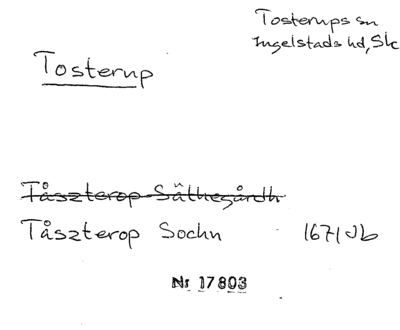 Tosterups sn
Ingelstads hd, Sk
Tosterup
Tåszterop Säthegårdh
Tåszterop Sochn 1671 Jb
Nr 17803